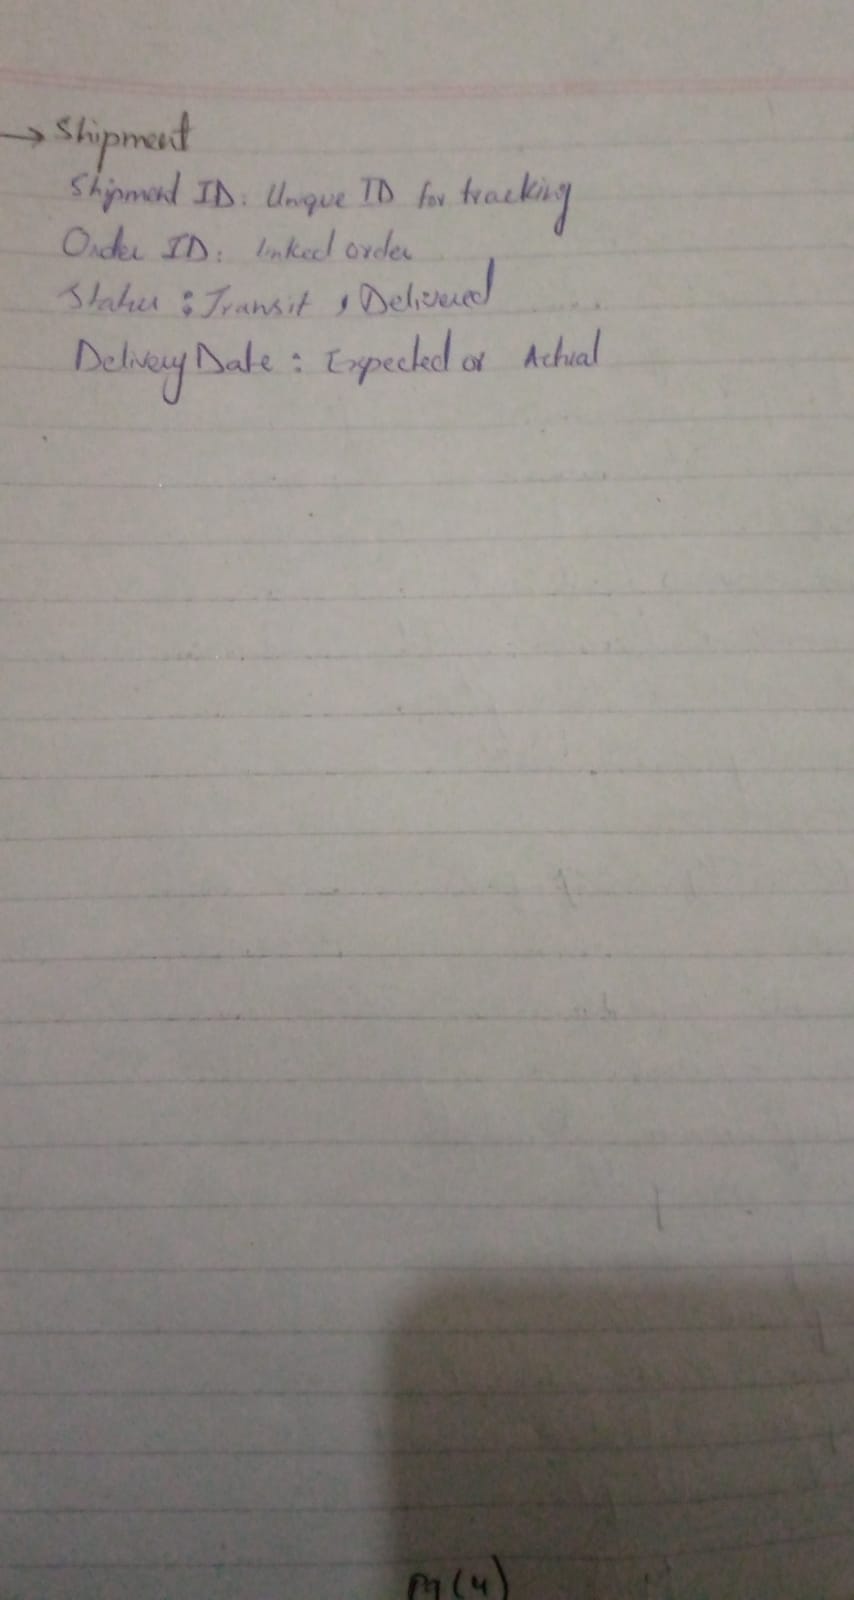 → Shipment
Shipment ID: Unique ID for tracking
Order ID: linked order
Status : Transit , Delivered
Delivery Date : Expected or Actual
Pg (4)